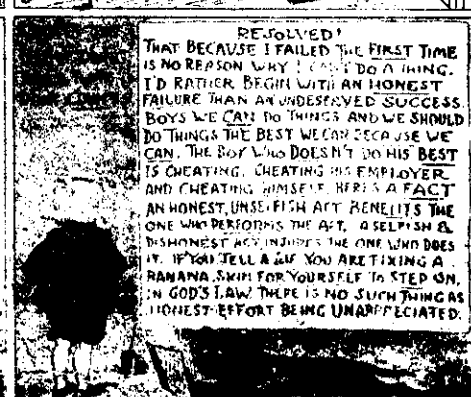 RESOLVED!
THAT BECAUSE I FAILED THE FIRST TIME
IS NO REASON WHY I CAN'T DO A THING.
I'D RATHER BEGIN WITH AN HONEST
FAILURE THAN AN UNDESERVED SUCCESS.
BOYS WE CAN DO THINGS AND WE SHOULD
DO THINGS THE BEST WE CAN BECAUSE WE
CAN. THE BOY WHO DOESN'T DO HIS BEST
IS CHEATING. CHEATING HIS EMPLOYER
AND CHEATING HIMSELF. HERE'S A FACT
AN HONEST, UNSELFISH ACT BENEFITS THE
ONE WHO PERFORMS THE ACT. A SELFISH &
DISHONEST ACT INJURES THE ONE WHO DOES
IT. IF YOU TELL A LIE YOU ARE FIXING A
BANANA SKIN FOR YOURSELF TO STEP ON.
IN GOD'S LAW THERE IS NO SUCH THING AS
HONEST EFFORT BEING UNAPPRECIATED.